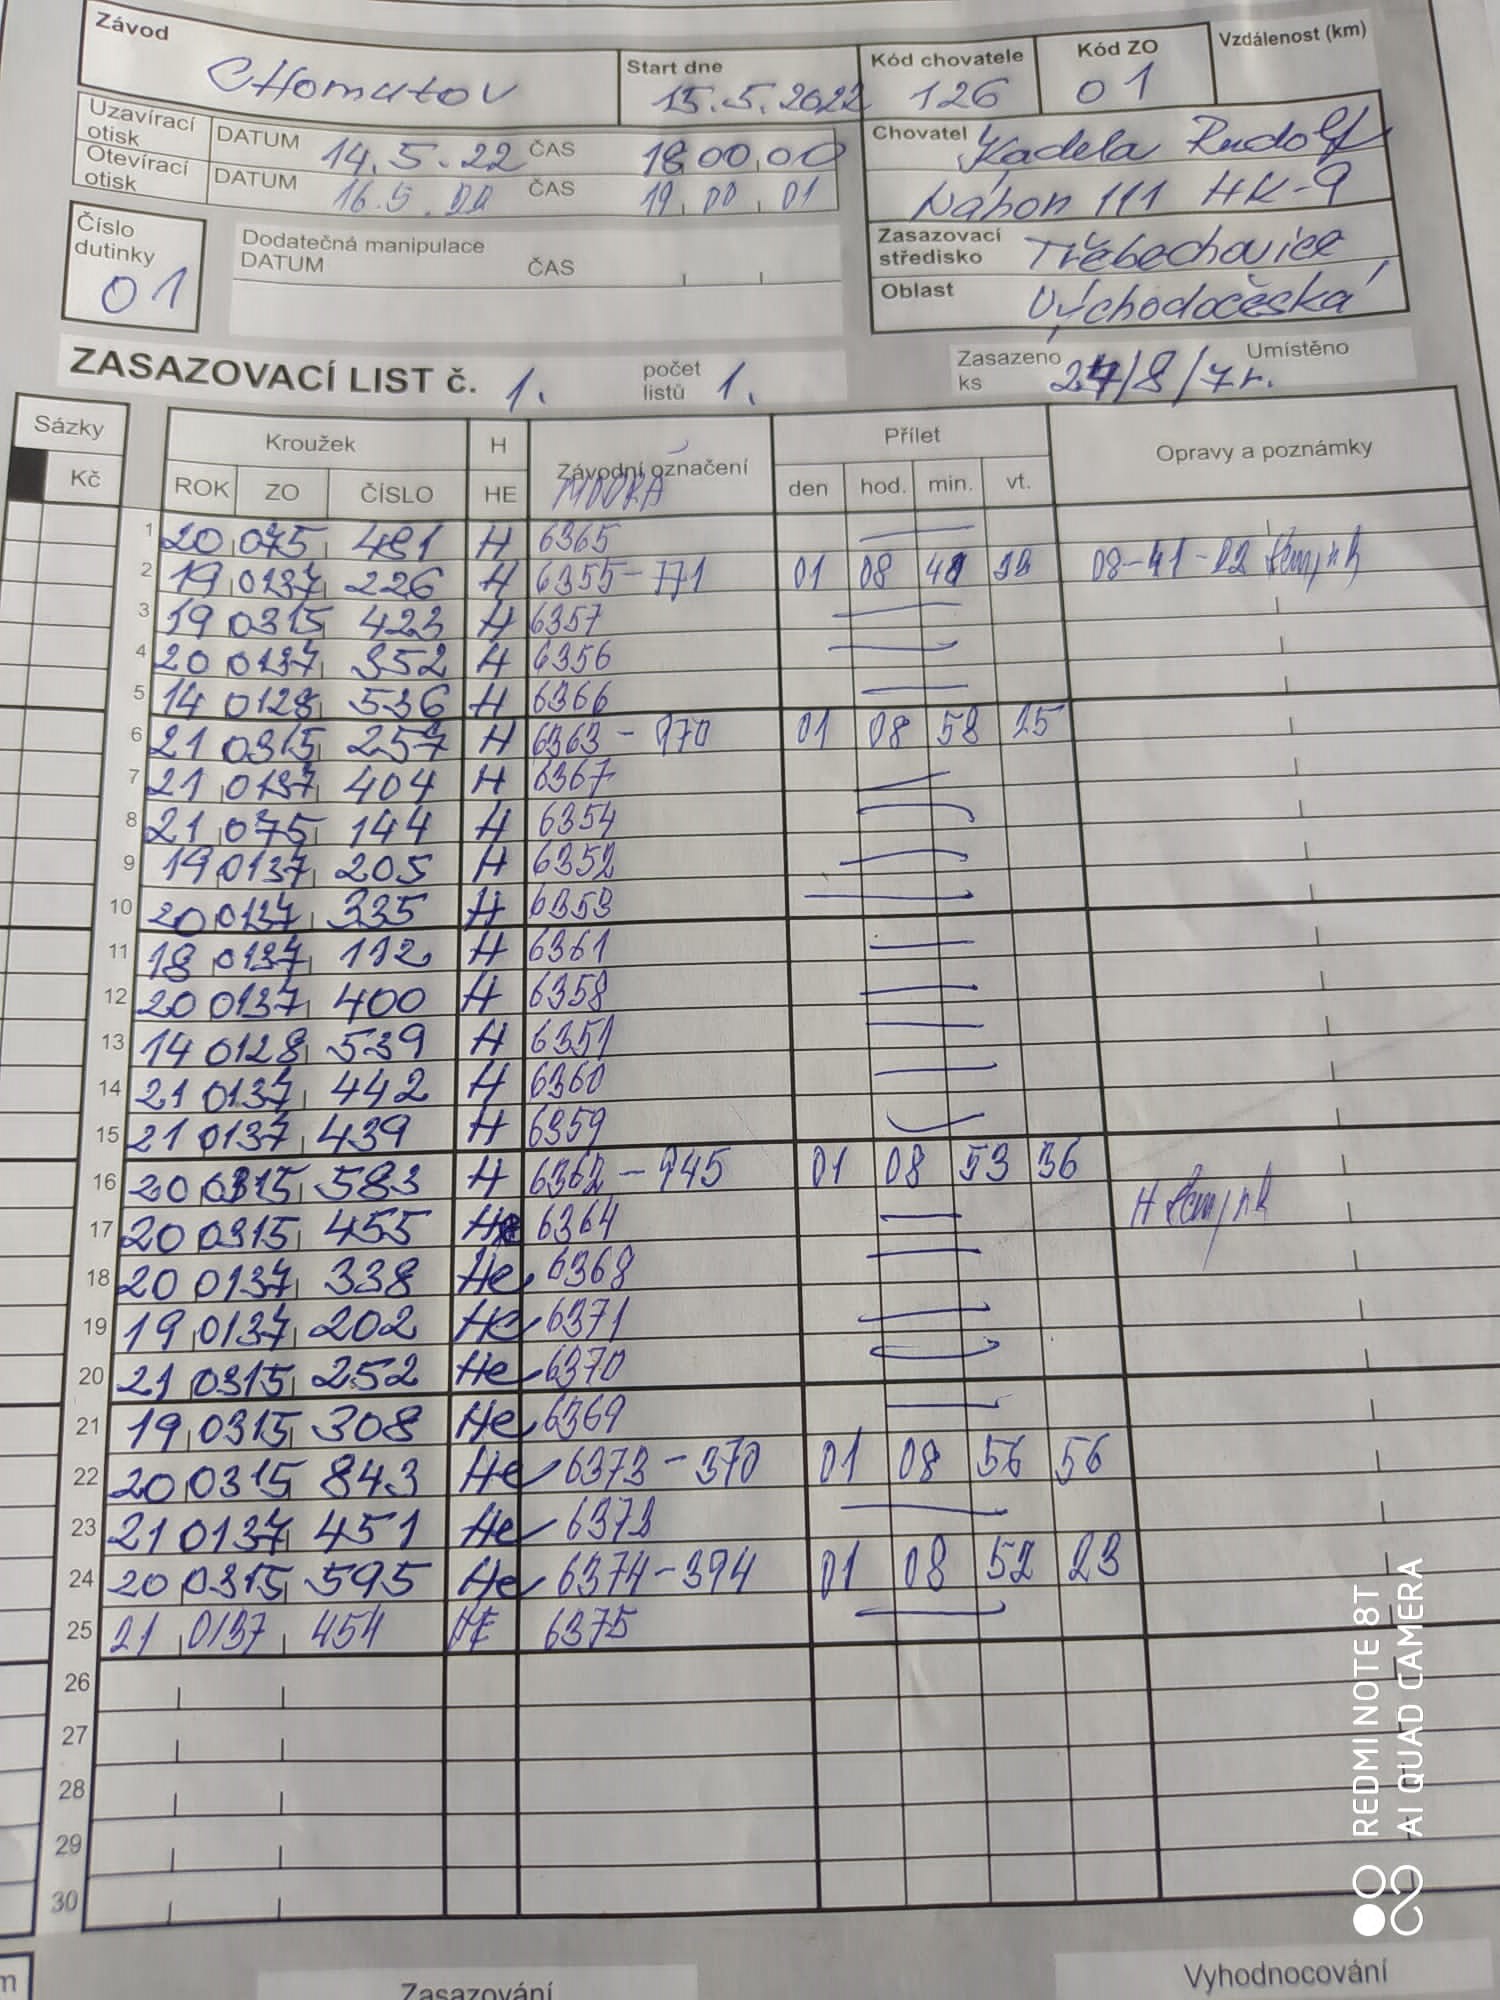 Závod
CHomutov
Start dne
15.5.2022
Kód chovatele
126
Kód ZO
01
Vzdálenost (km)
Uzavírací otisk DATUM 14.5.22 ČAS 18 00,00
Otevírací otisk DATUM 16.5. ČAS 19,00,01
Chovatel Kadela Rudolf
Náhon 111 HK-9
Zasazovací středisko Třebechovice
Oblast Východočeská
Číslo dutinky
01
Dodatečná manipulace
DATUM ČAS
ZASAZOVACÍ LIST č. 1. počet listů 1.
Zasazeno ks /8/7r. Umístěno
Sázky Kroužek H Závodní označení Přílet Opravy a poznámky
Kč ROK ZO ČÍSLO HE MODRÁ den hod. min. vt.
1 20 075 481 H 6365
2 19 0137 226 H 6355-771 01 08 41 08-41-22
3 19 0315 423 H 6357
4 20 0137 352 H 6356
5 14 0128 536 H 6366
6 21 0315 257 H 6363 - 970 01 08 58 25
7 21 0137 404 H 6367
8 21 075 144 H 6354
9 19 0137 205 H 6352
10 20 0137 335 H 6353
11 18 0137 112 H 6361
12 20 0137 400 H 6358
13 14 0128 539 H 6351
14 21 0137 442 H 6360
15 21 0137 439 H 6359
16 20 0315 583 H 6362 - 945 01 08 53 36
17 20 0315 455 6364 H
18 20 0137 338 He 6368
19 19 0137 202 He 6371
20 21 0315 252 He 6370
21 19 0315 308 He 6369
22 20 0315 843 He 6373 - 370 01 08 56 56
23 21 0137 451 He
24 20 0315 595 He 6374-394 01 08 52 23
25 21 0137 454 HE 6375
26
27
28
29
30
m
Zasazování
Vyhodnocování
REDMI NOTE 8T
AI QUAD CAMERA